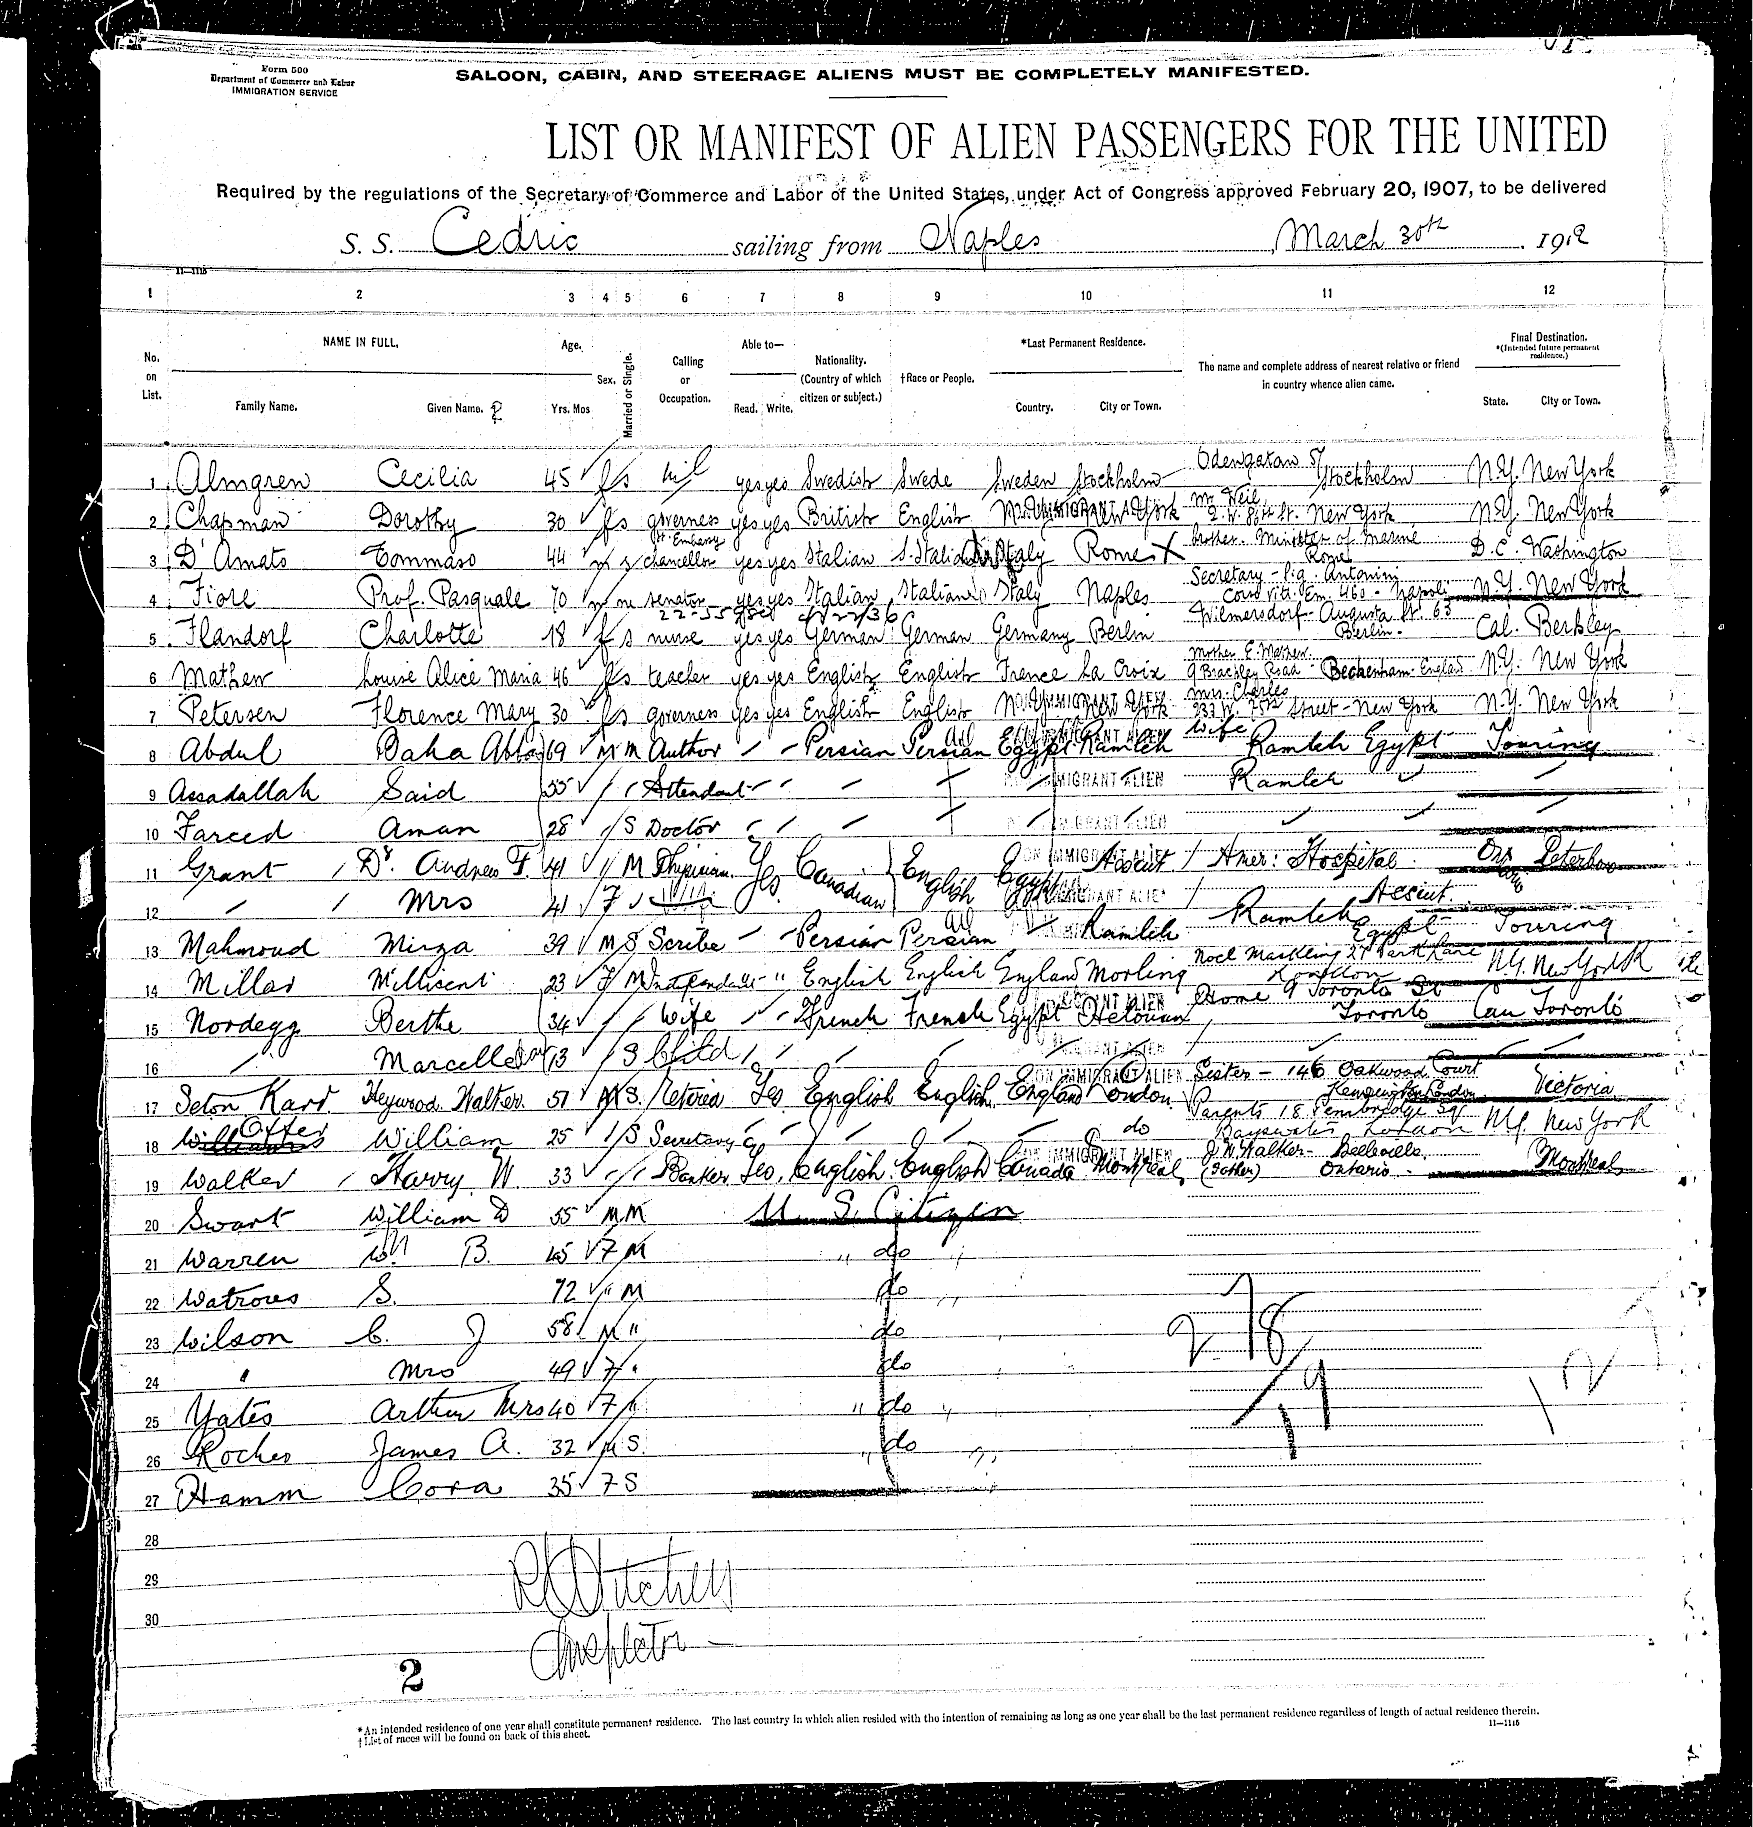 Form 500
Department of Commerce and Labor
IMMIGRATION SERVICE
SALOON, CABIN, AND STEERAGE ALIENS MUST BE COMPLETELY MANIFESTED.
LIST OR MANIFEST OF ALIEN PASSENGERS FOR THE UNITED
Required by the regulations of the Secretary of Commerce and Labor of the United States, under Act of Congress approved February 20, 1907, to be delivered
S. S. Cedric sailing from Naples March 30th, 1912
11—1115
1 2 3 4 5 6 7 8 9 10 11 12
No. on List. NAME IN FULL. Family Name. Given Name. Age. Yrs. Mos Sex. Married or Single. Calling or Occupation. Able to— Read. Write. Nationality. (Country of which citizen or subject.) †Race or People. *Last Permanent Residence. Country. City or Town. The name and complete address of nearest relative or friend in country whence alien came. Final Destination. *(Intended future permanent residence.) State. City or Town.
1 Almgren Cecilia 45 f s nil yes yes Swedish Swede Sweden Stockholm Odengatan 57 Stockholm N.Y. New York
2 Chapman Dorothy 30 f s governess yes yes British English New York Mr Weil 2 W. 86th St. New York N.Y. New York
3 D'Amato Tommaso 44 m s chancellor It. Embassy yes yes Italian S. Italian Italy Rome X brother - Minister of Marine Rome D.C. Washington
4 Fiore Prof. Pasquale 70 m m senator yes yes Italian Italian Italy Naples Secretary - Sig. Antonini Corso Vitt. Em. 460 - Napoli N.Y. New York
5 Flandorf Charlotte 18 f s nurse yes yes German German Germany Berlin Wilmersdorf - Augusta St. 63 Berlin. Cal. Berkley
6 Mathew Louise Alice Maria 46 f s teacher yes yes English English France La Croix Mother E. Mathew 9 Brackley Road - Beckenham England N.Y. New York
7 Petersen Florence Mary 30 f s governess yes yes English English New York Mrs. Charles 233 W. 75th Street - New York N.Y. New York
8 Abdul Baha Abbas 69 M M Author Persian Persian Egypt Ramleh Wife Ramleh Egypt Touring
9 Assadallah Said 55 Attendant Ramleh
10 Fareed Aman 28 S Doctor
11 Grant Dr. Andrew F. 41 M Physician Yes Canadian English Egypt Assiut Amer: Hospital Ont Peterboro
12 Mrs 41 F Yes Assiut.
13 Mahmoud Mirza 39 M S Scribe Persian Persian Ramleh Ramleh Egypt Touring
14 Millar Millisent 23 F M Independent English English England Morling Noel Maskling 27 Park Lane London N.Y. New York
15 Nordegg Berthe 34 Wife French French Egypt Helouan Home 9 Toronto St Toronto Can Toronto
16 Marcelle 13 S Child
17 Seton Karr Heywood Walter. 51 M S. Retired Yes English English England London Sister - 146 Oakwood Court Kensington London Victoria
18 Otter William 25 S Secretary do Parents 18 Pembridge Sq Bayswater London N.Y. New York
19 Walker Harry. W. 33 Banker Yes. English. English Canada Montreal J.W. Walker - Belleville, (Father) Ontario. Montreal
20 Swart William D 55 M M U. S. Citizen
21 Warren Wm B. 45 F M " do "
22 Watrous S. 72 " M do "
23 Wilson C. J 58 M " do
24 " Mrs 49 F " do
25 Yates Arthur Mrs 40 F " do "
26 Roches James A. 32 M S. " do "
27 Hamm Cora 35 F S
28
29
30
Inspector
2
*An intended residence of one year shall constitute permanent residence. The last country in which alien resided with the intention of remaining as long as one year shall be the last permanent residence regardless of length of actual residence therein.
†List of races will be found on back of this sheet.
11—1115